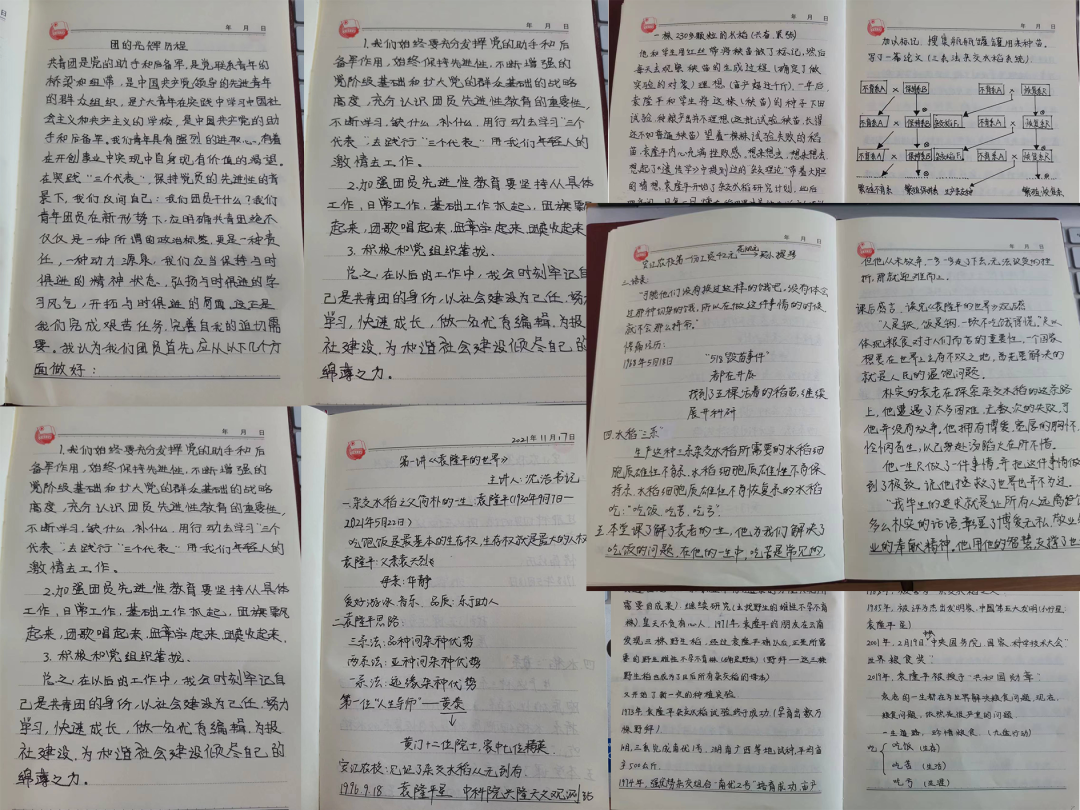 年 月 日
团的光辉历程
共青团是党的助手和后备军,是党联系青年的
桥梁和纽带,是中国共产党领导的先进青年
的群众组织,是广大青年在实践中学习中国社
会主义和共产主义的学校,是中国共产党的助
手和后备军。我们青年具有强烈的进取心,有着
在开创事业中实现中自身现有价值的渴望。
在实践“三个代表”、保持党员的先进性的背
景下,我们反问自己:我们团员干什么?我们
青年团员在新形势下,应明确共青团绝不
仅仅是一种所谓的政治标签,更是一种责
任,一种动力源泉,我们应当保持与时
俱进的精神状态,弘扬与时俱进的学
习风气,开拓与时俱进的局面,这正是
我们完成艰苦任务,完善自我的迫切需
要。我认为我们团员首先应从以下几个方
面做好:
年 月 日
1.我们始终要充分发挥党的助手和后
备军作用,始终保持先进性,不断增强的
党阶级基础和扩大党的群众基础的战略
高度,充分认识团员先进性教育的重要性,
不断学习,缺什么,补什么,用行动去学习“三个
代表”,去践行“三个代表”用我们年轻人的
激情去工作。
2.加强团员先进性教育要坚持从具体
工作,日常工作,基础工作抓起,团旗飘
起来,团歌唱起来,团章学起来,团徽戴起来
3.积极和党组织靠拢。
总之,在以后的工作中,我会时刻牢记自
己是共青团的身份,以社会建设为己任,努力
学习,快速成长,做一名优育编辑,为报
社建设,为和谐社会建设倾尽自己的
绵薄之力。
年 月 日
一株230多颗粒的水稻
他和学生用红丝带将秧苗做了标记,然后
每天去观察秧苗的生成过程(确定了做
实验的对象)理想(亩产超过千斤),一年后,
袁隆平和学生将这株(秧苗)的种子下田
试验,种植产出并不理想(这批试验秧苗,长得
还不如普通秧苗)望着一株株试验失败的稻
苗,袁隆平内心充满挫败感,想来想去,想来想去
想起了《遗传学》中提到过的杂交理论,带着大胆
的猜想,袁隆平开始了杂交水稻研究计划,此后
年 月 日
加以标记,搜集瓶瓶罐罐用来种苗。
写了一篇论文
不育系A × 保持系B 不育系A × 恢复系R
不育系A × 保持系B 杂交稻F₁ 不育系A × 恢复系R
不育系A × 保持系B 杂交稻F₁ 不育系A × 恢复系R
繁殖不育系 繁殖保持系 繁殖恢复系
年 月 日
安江农校第一份工资42元
三、语录:
就不会那么珍惜。”
1968年5月18日 “518毁苗事件”
都在开展
找到了五棵活着的稻苗,继续
展开科研
四、水稻“三系”
生产这种三系杂交水稻所需要的水稻细
胞质雄性不育系,水稻细胞质雄性不育保
持系,水稻细胞质雄性不育恢复系的水稻
吃:“吃饭,吃苦,吃亏”。
五、本堂课了解袁老的一生,他为我们解决了
吃饭的问题,在他的一生中,吃苦是常见的,
年 月 日
但他从未放弃,一步一步走了下去,无法说员的挫
折,那就迎难而上。
课后感言、读完《袁隆平的世界》观感
“人是铁,饭是钢,一顿不吃饿得慌,”足以
体现粮食对于人们而言的重要性,一个国家
想要在世界上立有不败之地,首先要解决的
就是人民的温饱问题。
朴实的袁老在探索杂交水稻的这条路
上,他遭遇了太多困难,无数次的失败,可
他并没有放弃,他拥有博爱,宽厚的胸怀
怜悯苍生,以己身赴汤蹈火在所不惜。
他一生只做了一件事情,并把这件事情做
到了极致,说他拯救了世界也并不为过。
“我毕生的追求就是让所有人远离饥饿
多么朴实的话语,彰显了博爱无私,敬业
业的奉献精神,他用他的智慧,支撑了世
年 月 日
1.我们始终要充分发挥党的助手和后
备军作用,始终保持先进性,不断增强的
党阶级基础和扩大党的群众基础的战略
高度,充分认识团员先进性教育的重要性,
不断学习,缺什么,补什么,用行动去学习“三个
代表”,去践行“三个代表”用我们年轻人的
激情去工作。
2.加强团员先进性教育要坚持从具体
工作,日常工作,基础工作抓起,团旗飘
起来,团歌唱起来,团章学起来,团徽戴起来,
3.积极和党组织靠拢。
总之,在以后的工作中,我会时刻牢记自
己是共青团的身份,以社会建设为己任,努力
学习,快速成长,做一名优育编辑,为报
社建设,为和谐社会建设倾尽自己的
绵薄之力。
2021年11月17日
第一讲《袁隆平的世界》
主讲人:沈浩书记
一、杂交水稻之父简朴的一生、袁隆平(1930年9月7日—
2021年5月22日)
吃饱饭是最基本的生存权,生存权就是最大的人权
袁隆平:父亲袁兴烈
母亲:华静
爱好游泳,音乐、品质:乐于助人
二、袁隆平思路
三系法:品种间杂种优势
两系法:亚种间杂种优势
一系法:远缘杂种优势
第一位“人生导师”——黄袁
安江农校:见证了杂交水稻从无到有
1996.9.18 袁隆平星 中科院兴隆天文观测站
需要自成果)。继续研究(去找野生的雄性不孕不育
株)皇天不负有心人,1971年,袁隆平的朋友在云南
发现三株野生稻,经过袁隆平确认后,正是所需
要的野生雄性不孕不育株
野生稻也成为了以后所有杂交稻的母本)
又开始了新一次的种植实验
1973年袁隆平杂交水稻试验终于成功
亩500公斤。
1974年,强优势杂交组合“南优2号”培育成功,亩产
1985年,被评为杰出发明家,
袁隆平星)
2001年,2月19日,中央国务院,国家“科学技术大会”
世界粮食奖?
2019年,袁隆平被授予“共和国勋章”
袁老的一生都在为世界解决粮食问题,现在,
粮食问题,依然是很严重的问题
一生道路,珍惜粮食(光盘行动)
吃 吃饭(生存)
吃苦(生活)
吃亏